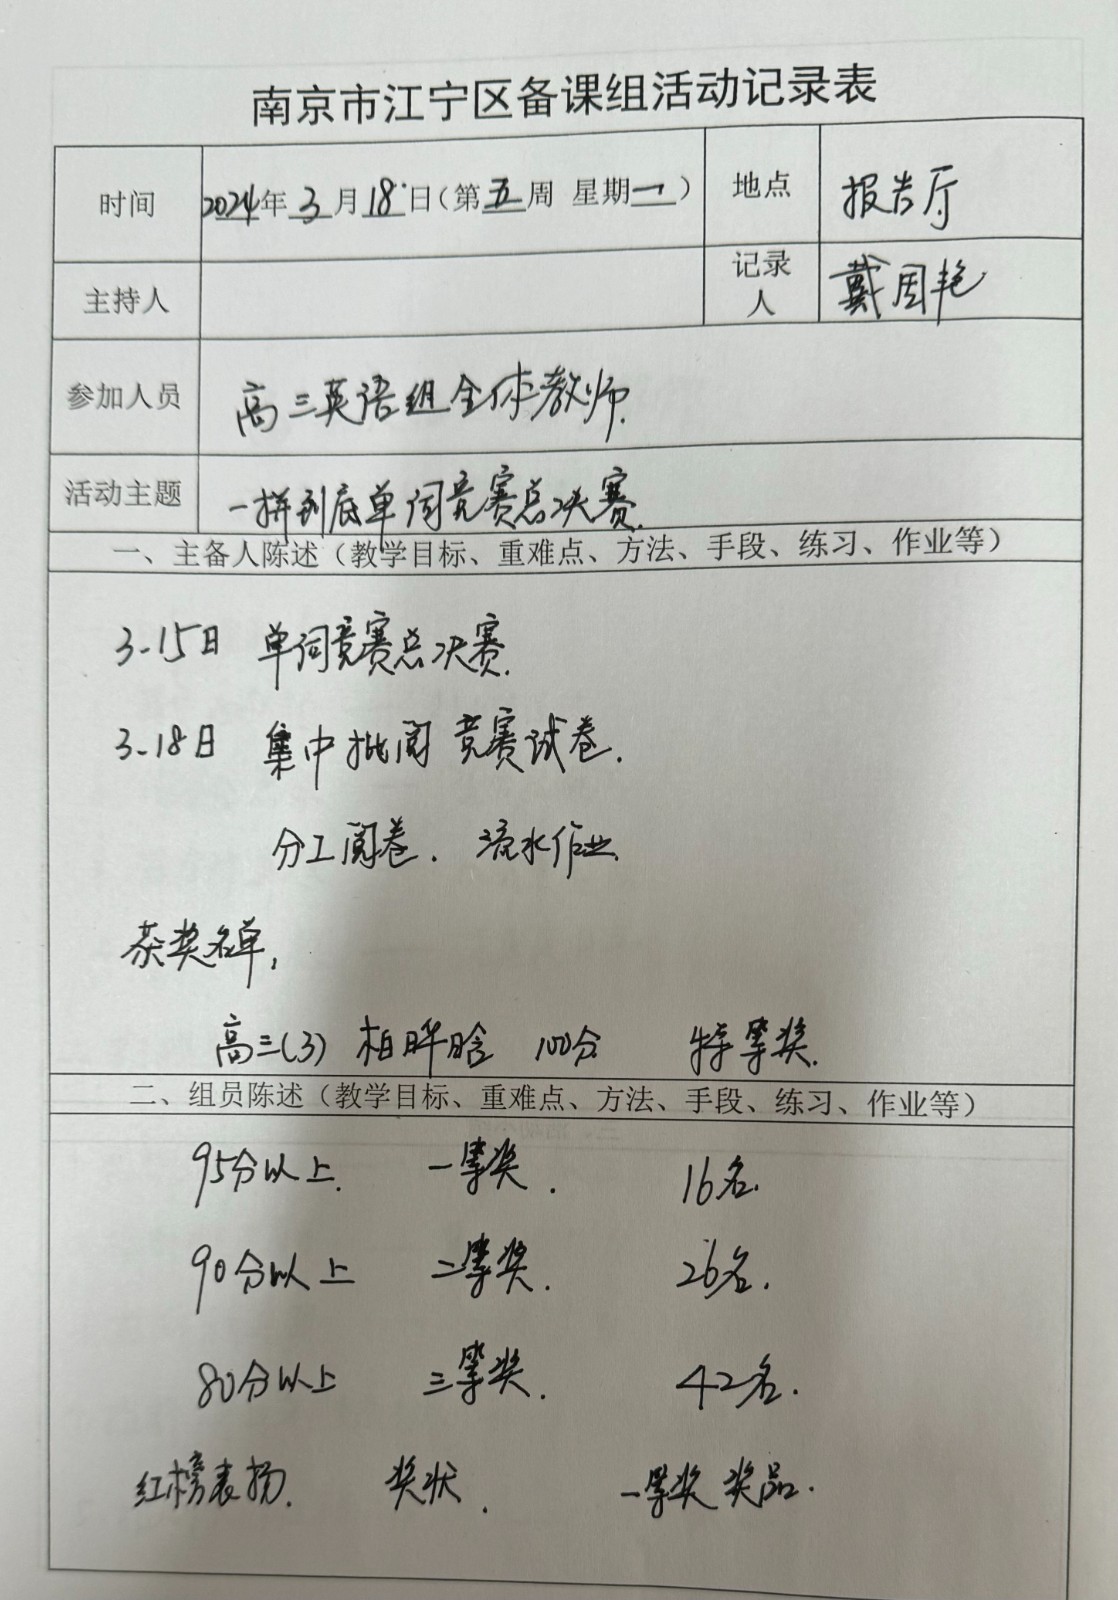 南京市江宁区备课组活动记录表
时间 2024年3月18日(第五周 星期一) 地点 报告厅
主持人 记录人 戴周艳
参加人员 高三英语组全体教师.
活动主题 一拼到底单词竞赛总决赛.
一、主备人陈述(教学目标、重难点、方法、手段、练习、作业等)
3-15日 单词竞赛总决赛.
3-18日 集中批阅竞赛试卷.
分工阅卷. 流水作业.
获奖名单,
高三(3) 柏晔晗 100分 特等奖.
二、组员陈述(教学目标、重难点、方法、手段、练习、作业等)
95分以上. 一等奖. 16名.
90分以上 二等奖. 26名.
80分以上 三等奖. 42名.
红榜表扬. 奖状. 一等奖奖品.